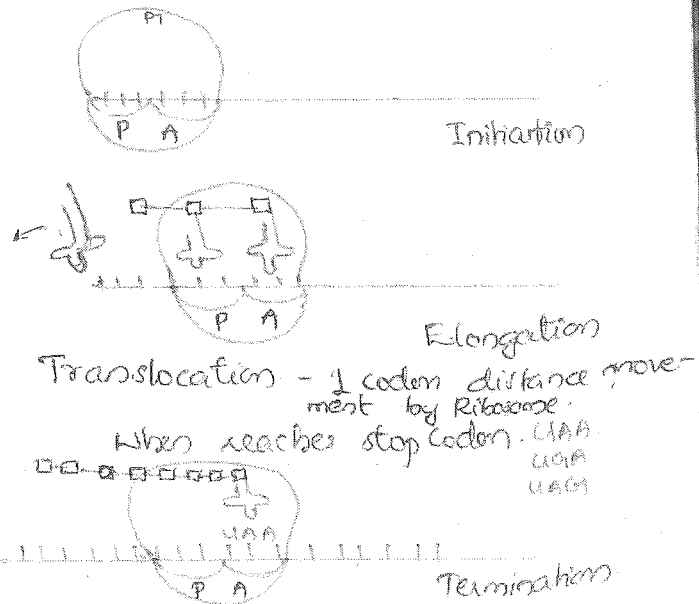 PT
P A
Initiartion
P A
Elongation
Translocation - 1 codon distance move-
ment by Ribosome.
When reaches stop codon. UAA
UGA
UAG
UAA
P A
Termination.